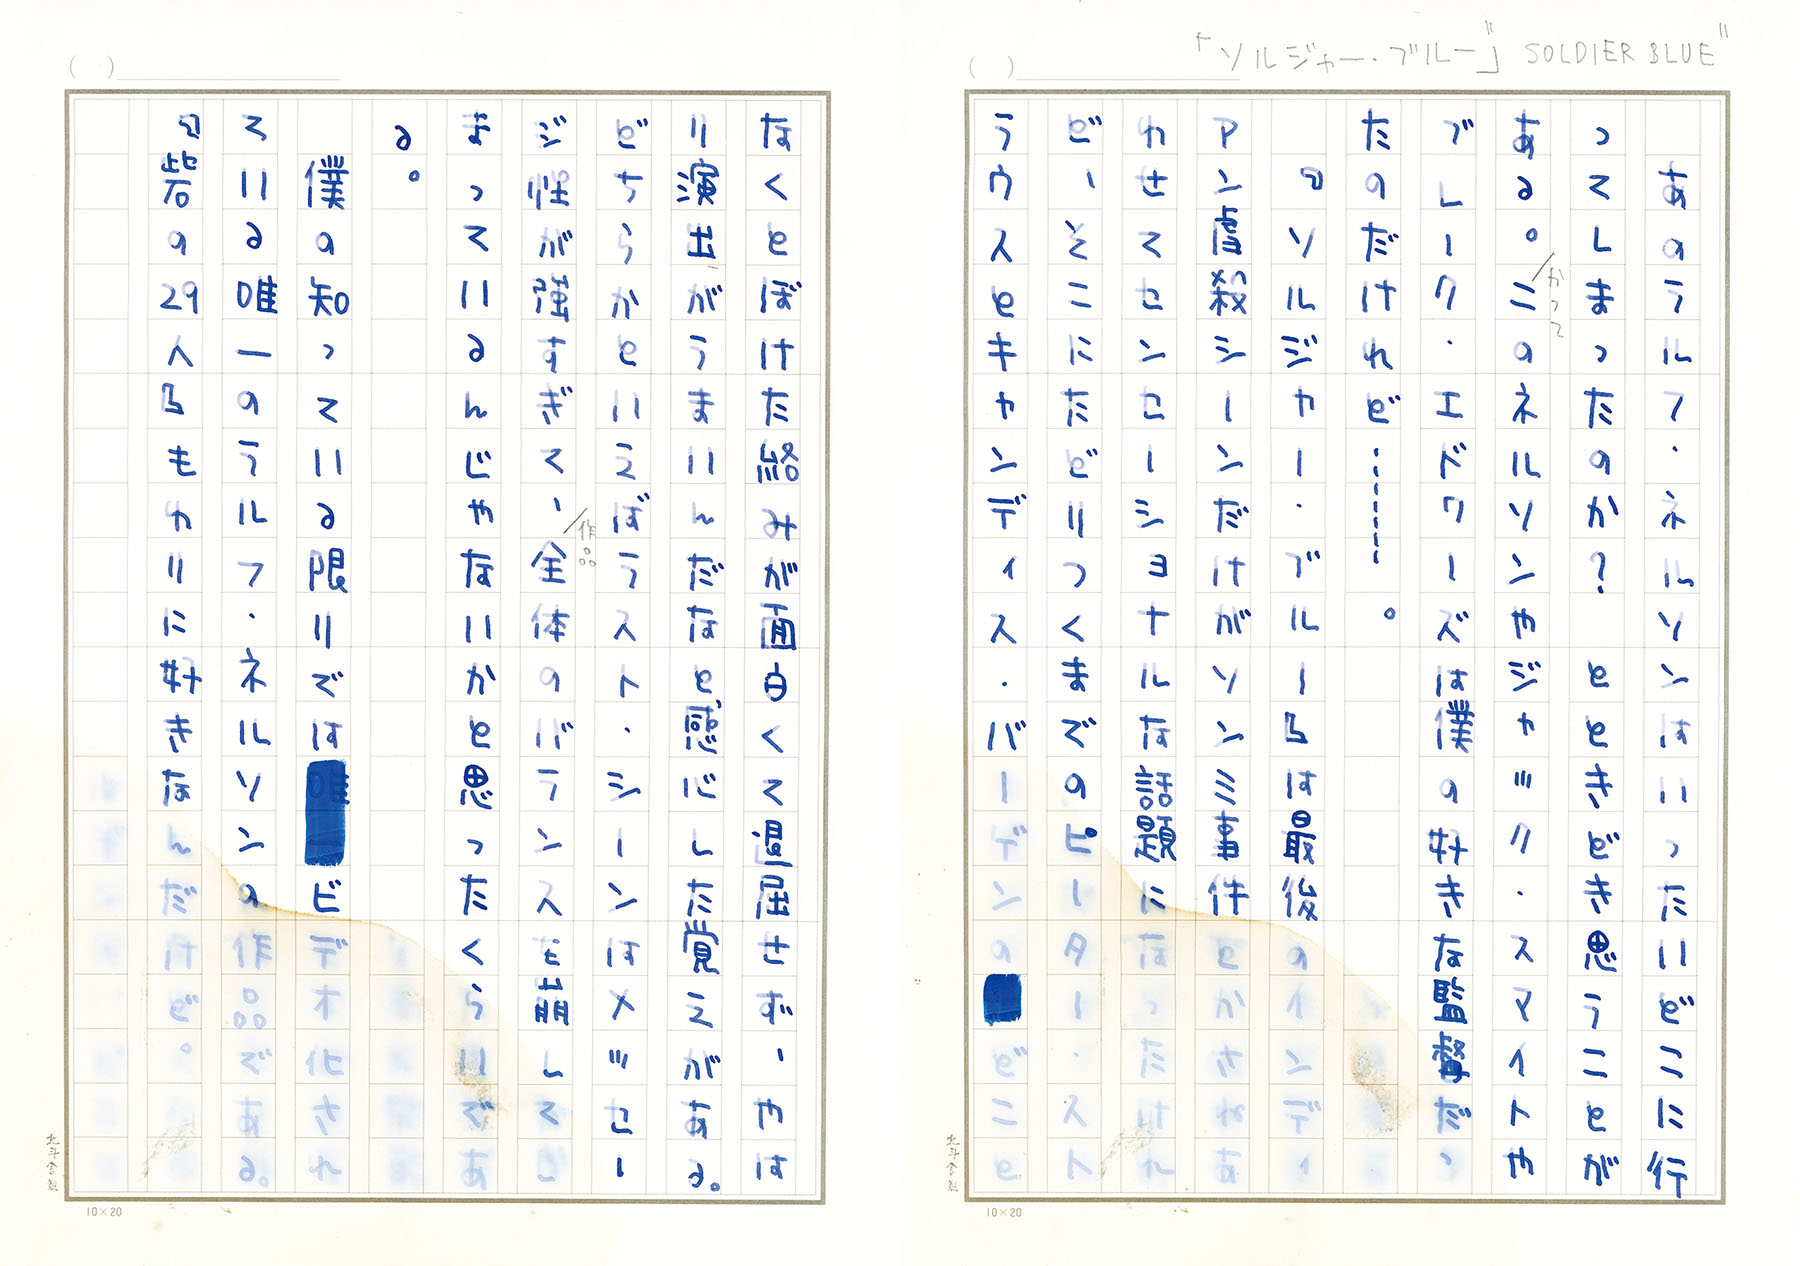 「ソルジャー・ブルー」 "SOLDIER BLUE"
( )
あのラルフ・ネルソンはいったいどこに行
ってしまったのか? とときどき思うことが
ある。かつてこのネルソンやジャック・スマイトや
ブレーク・エドワーズは僕の好きな監督だっ
たのだけれど………。
『ソルジャー・ブルー』は最後のインディ
アン虐殺シーンだけがソンミ事件とかさねあ
わせてセンセーショナルな話題になったけれ
ど、そこにたどりつくまでのピーター・スト
ラウスとキャンディス・バーデンのどこと
10×20
( )
なくとぼけた絡みが面白くて退屈せず、やは
り演出がうまいんだなと感心した覚えがある。
どちらかといえばラスト・シーンはメッセー
ジ性が強すぎて、作品全体のバランスを崩してし
まっているんじゃないかと思ったくらいであ
る。
僕の知っている限りではビデオ化され
ている唯一のラルフ・ネルソンの作品である。
『砦の29人』もわりに好きなんだけど。
10×20